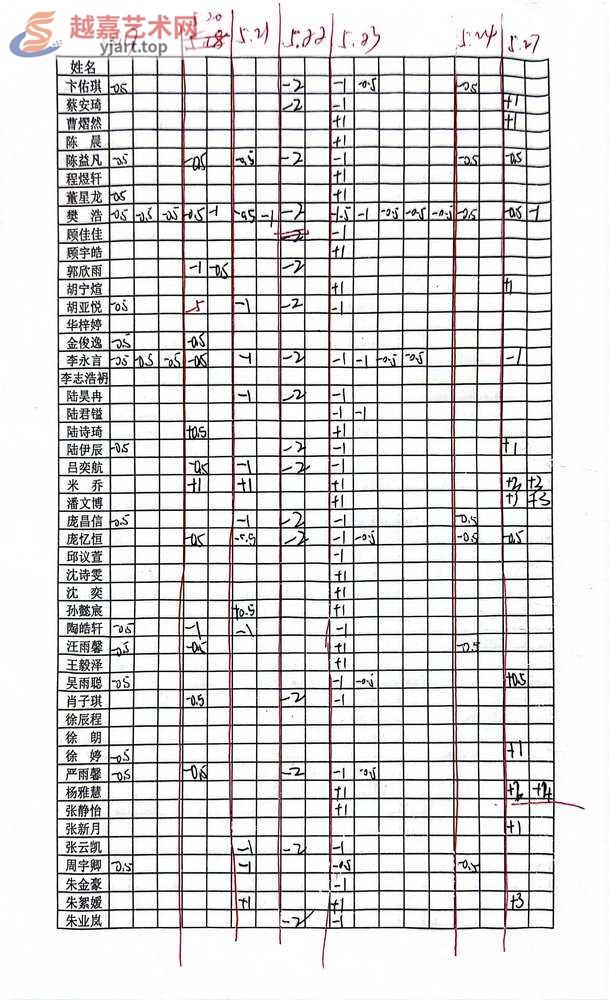 越嘉艺术网
yjart.top
5.20 5.21 5.22 5.23 5.24 5.27
姓名
卞佑琪 -0.5 -2 -1 -0.5 -0.5
蔡安琦 -2 -1 +1
曹熠然 +1 +1
陈晨 +1
陈益凡 -0.5 -0.5 -0.5 -2 +1 -0.5 -0.5
程煜轩 +1
董星龙 -0.5 +1
樊浩 -0.5 -0.5 -0.5 -0.5 -1 -0.5 -1 -2 -1.5 -1 -0.5 -0.5 -0.5 -0.5 -0.5 -1
顾佳佳 -2 -1
顾宇皓 +1
郭欣雨 -1 -0.5 -2
胡宁煊 +1 +1
胡亚悦 -0.5 -1 -2 -1
华梓婷
金俊逸 -0.5 -0.5
李永言 -0.5 -0.5 -0.5 -0.5 -1 -2 -1 -1 -0.5 -0.5 -1
李志浩祤
陆昊冉 -1 -2 -1
陆君镒 -1 -1
陆诗琦 +0.5 +1
陆伊辰 -0.5 -2 -1 +1
吕奕航 -0.5 -1 -2 -1
米乔 +1 +1 +1 +2
潘文博 +1 +1 +3
庞昌信 -0.5 -1 -2 -1 -0.5
庞忆恒 -0.5 -2 -1 -0.5 -0.5 -0.5
邱议萱 -1
沈诗雯 +1
沈奕 +1
孙懿宸 +0.5 +1
陶皓轩 -0.5 -1 -1 -1
汪雨馨 -0.5 -0.5 +1 -0.5
王毅泽 +1
吴雨聪 -0.5 -1 -0.5 +0.5
肖子琪 -0.5 -2 -1
徐辰程
徐朗
徐婷 -0.5 +1
严雨馨 -0.5 -0.5 -2 -1 -0.5
杨雅慧 +1
张静怡 +1
张新月 +1
张云凯 -1 -2 -1
周宇卿 -0.5 -1 -0.5 -0.5
朱金豪 -1
朱絮媛 +1 +1 +3
朱业岚 -2 -1